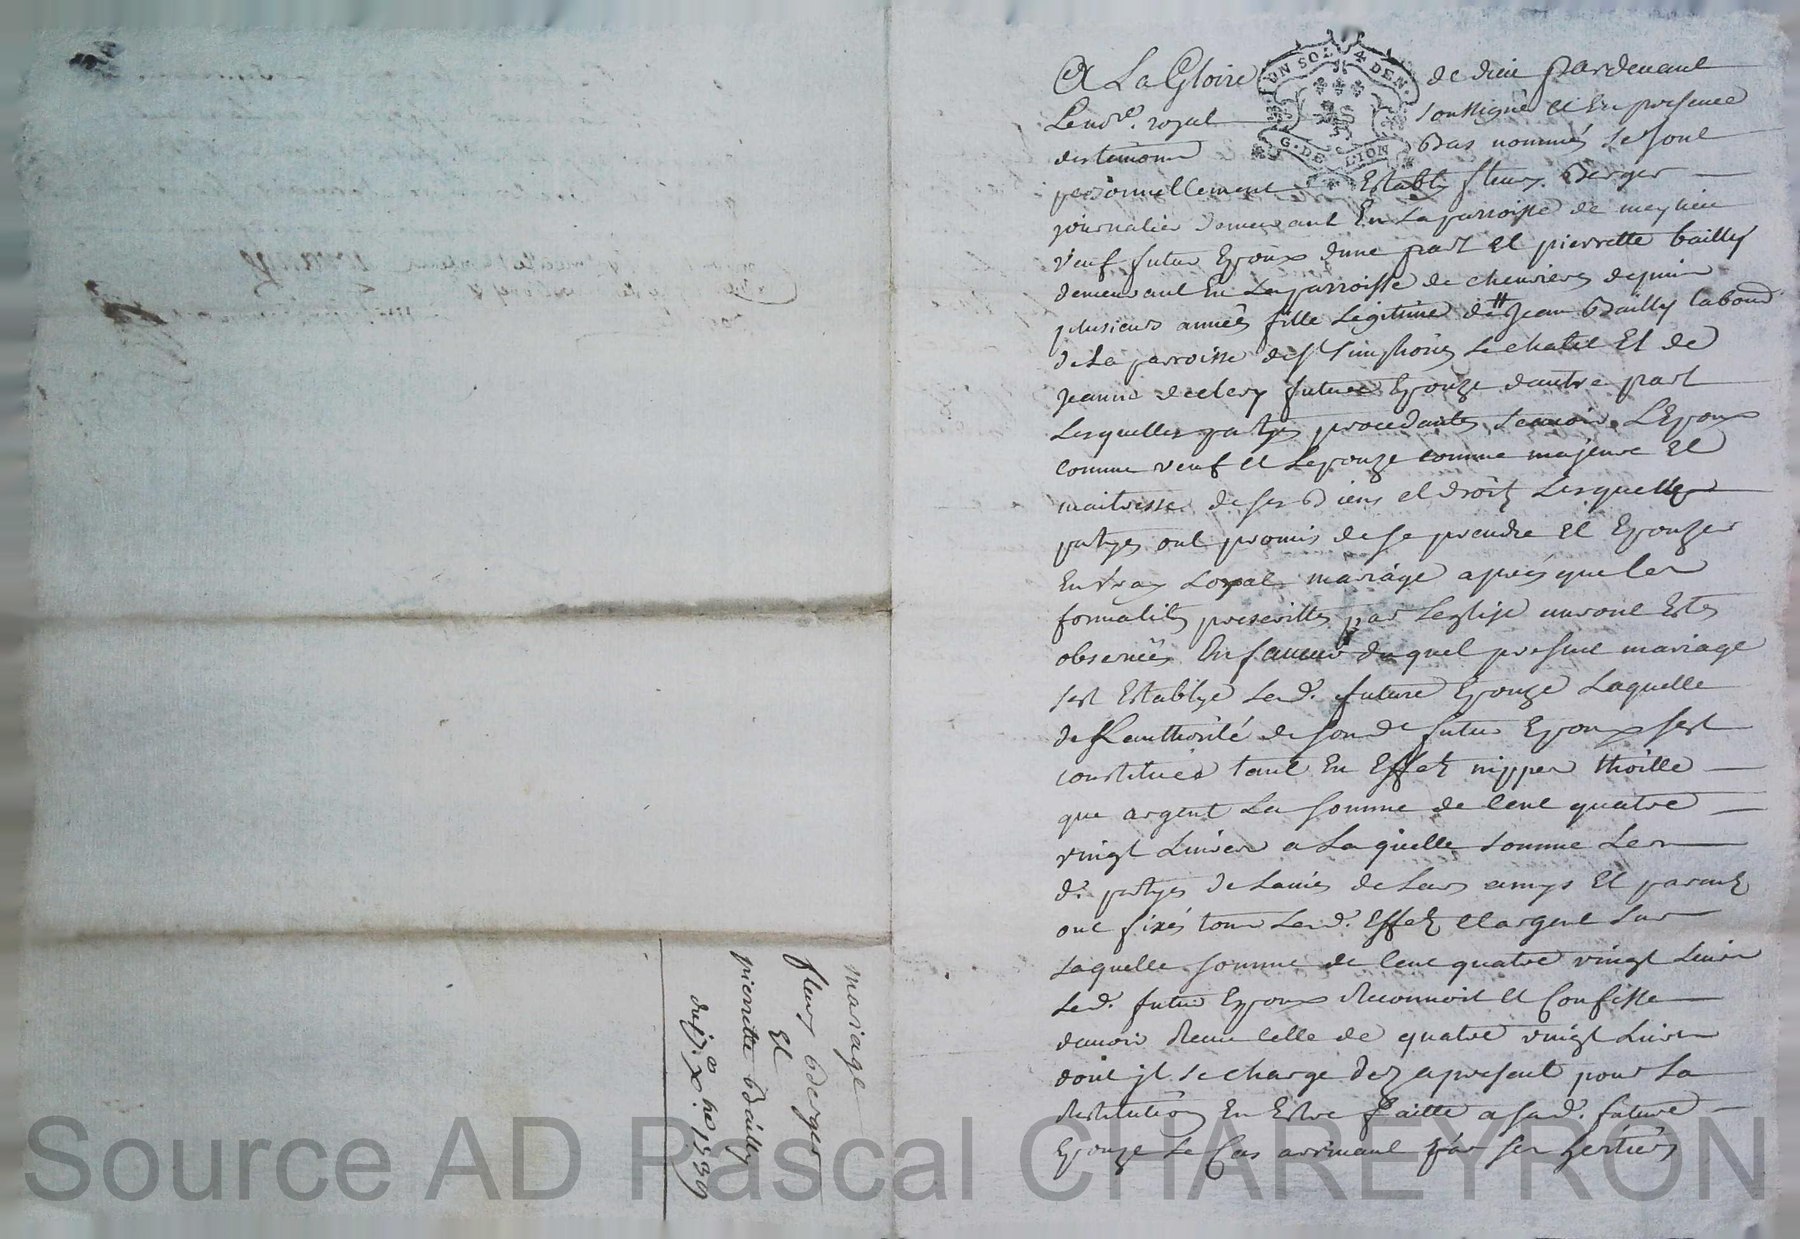 mariage
fleury Berger
Et
pierrette Bailly
A La Gloire de dieu pardevant
Le no.re royal soussigné et En presence
des temoins Bas nommés se sont
personnellement Establys fleury Berger
journalier demeurant En La parroisse de meylieu
veuf futur Epoux dune part et pierrette bailly
demeurant En La parroisse de chevrieres depuis
plusieurs années fille Legitime de Jean Bailly labour
de La parroisse de st simphorien Le chatel Et de
jeanne future Epouze dautre part
Lesquelles partyes procedantes scavoir L'Epoux
comme veuf et Lepouze comme majeure Et
maitresse de ses Biens et droits Lesquelles
partyes ont promis de se prendre Et Epouzer
En vray Loyal mariage apres que les
formalités prescrittes par Leglise auront Estés
observées En faveur duquel present mariage
sest Establye Lad. future Epouze Laquelle
de Lauthorité de son d. futur Epoux sest
constituée tant En Effets nippes thoille
que argent La somme de cent quatre
vingt Livres a La quelle somme Les
d. partyes de Lavis de Leurs amys Et parents
ont fixés tous Lesd. Effets et argent Sur
Laquelle somme de cent quatre vingt Livres
Led. futur Epoux Reconnoit et Confesse
davoir Receu celle de quatre vingt Livres
dont jl se charge dez apresent pour La
Restitution En Estre faitte a sad. future
Epouze Le Cas arrivant par ses hertiers
UN SOL 4 DEN.
G. DE LION
Source AD Pascal CHAREYRON